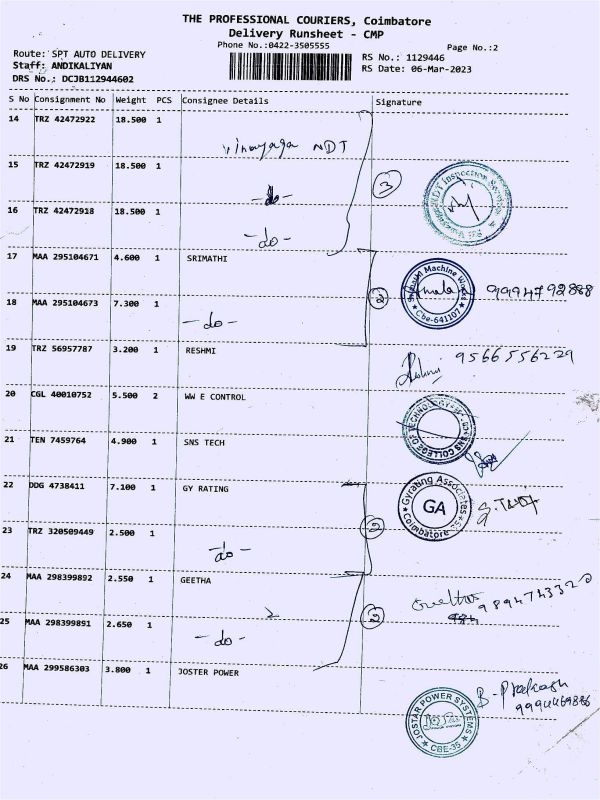 THE PROFESSIONAL COURIERS, Coimbatore
Delivery Runsheet - CMP
Phone No.:0422-3505555
Page No.:2
Route: SPT AUTO DELIVERY
RS No.: 1129446
Staff: ANDIKALIYAN
RS Date: 06-Mar-2023
DRS No.: DCJB112944602
S No Consignment No Weight PCS Consignee Details Signature
14 TRZ 42472922 18.500 1
Vinayaga NDT
15 TRZ 42472919 18.500 1
-do-
3
NDT Inspection Services
16 TRZ 42472918 18.500 1
-do-
17 MAA 295104671 4.600 1 SRIMATHI
Machine Works
Cbe-641107
9994792888
2
18 MAA 295104673 7.300 1
-do-
19 TRZ 56957787 3.200 1 RESHMI
9566556229
20 CGL 40010752 5.500 2 WW E CONTROL
SNS COLLEGE OF TECHNOLOGY
21 TEN 7459764 4.900 1 SNS TECH
22 DDG 4738411 7.100 1 GY RATING
Gyrating Associates
GA
Coimbatore
2
23 TRZ 320509449 2.500 1
-do-
24 MAA 298399892 2.550 1 GEETHA
2
25 MAA 298399891 2.650 1
-do-
26 MAA 299586303 3.800 1 JOSTER POWER
B-Prakash
JOSTAR POWER SYSTEMS
CBE-35